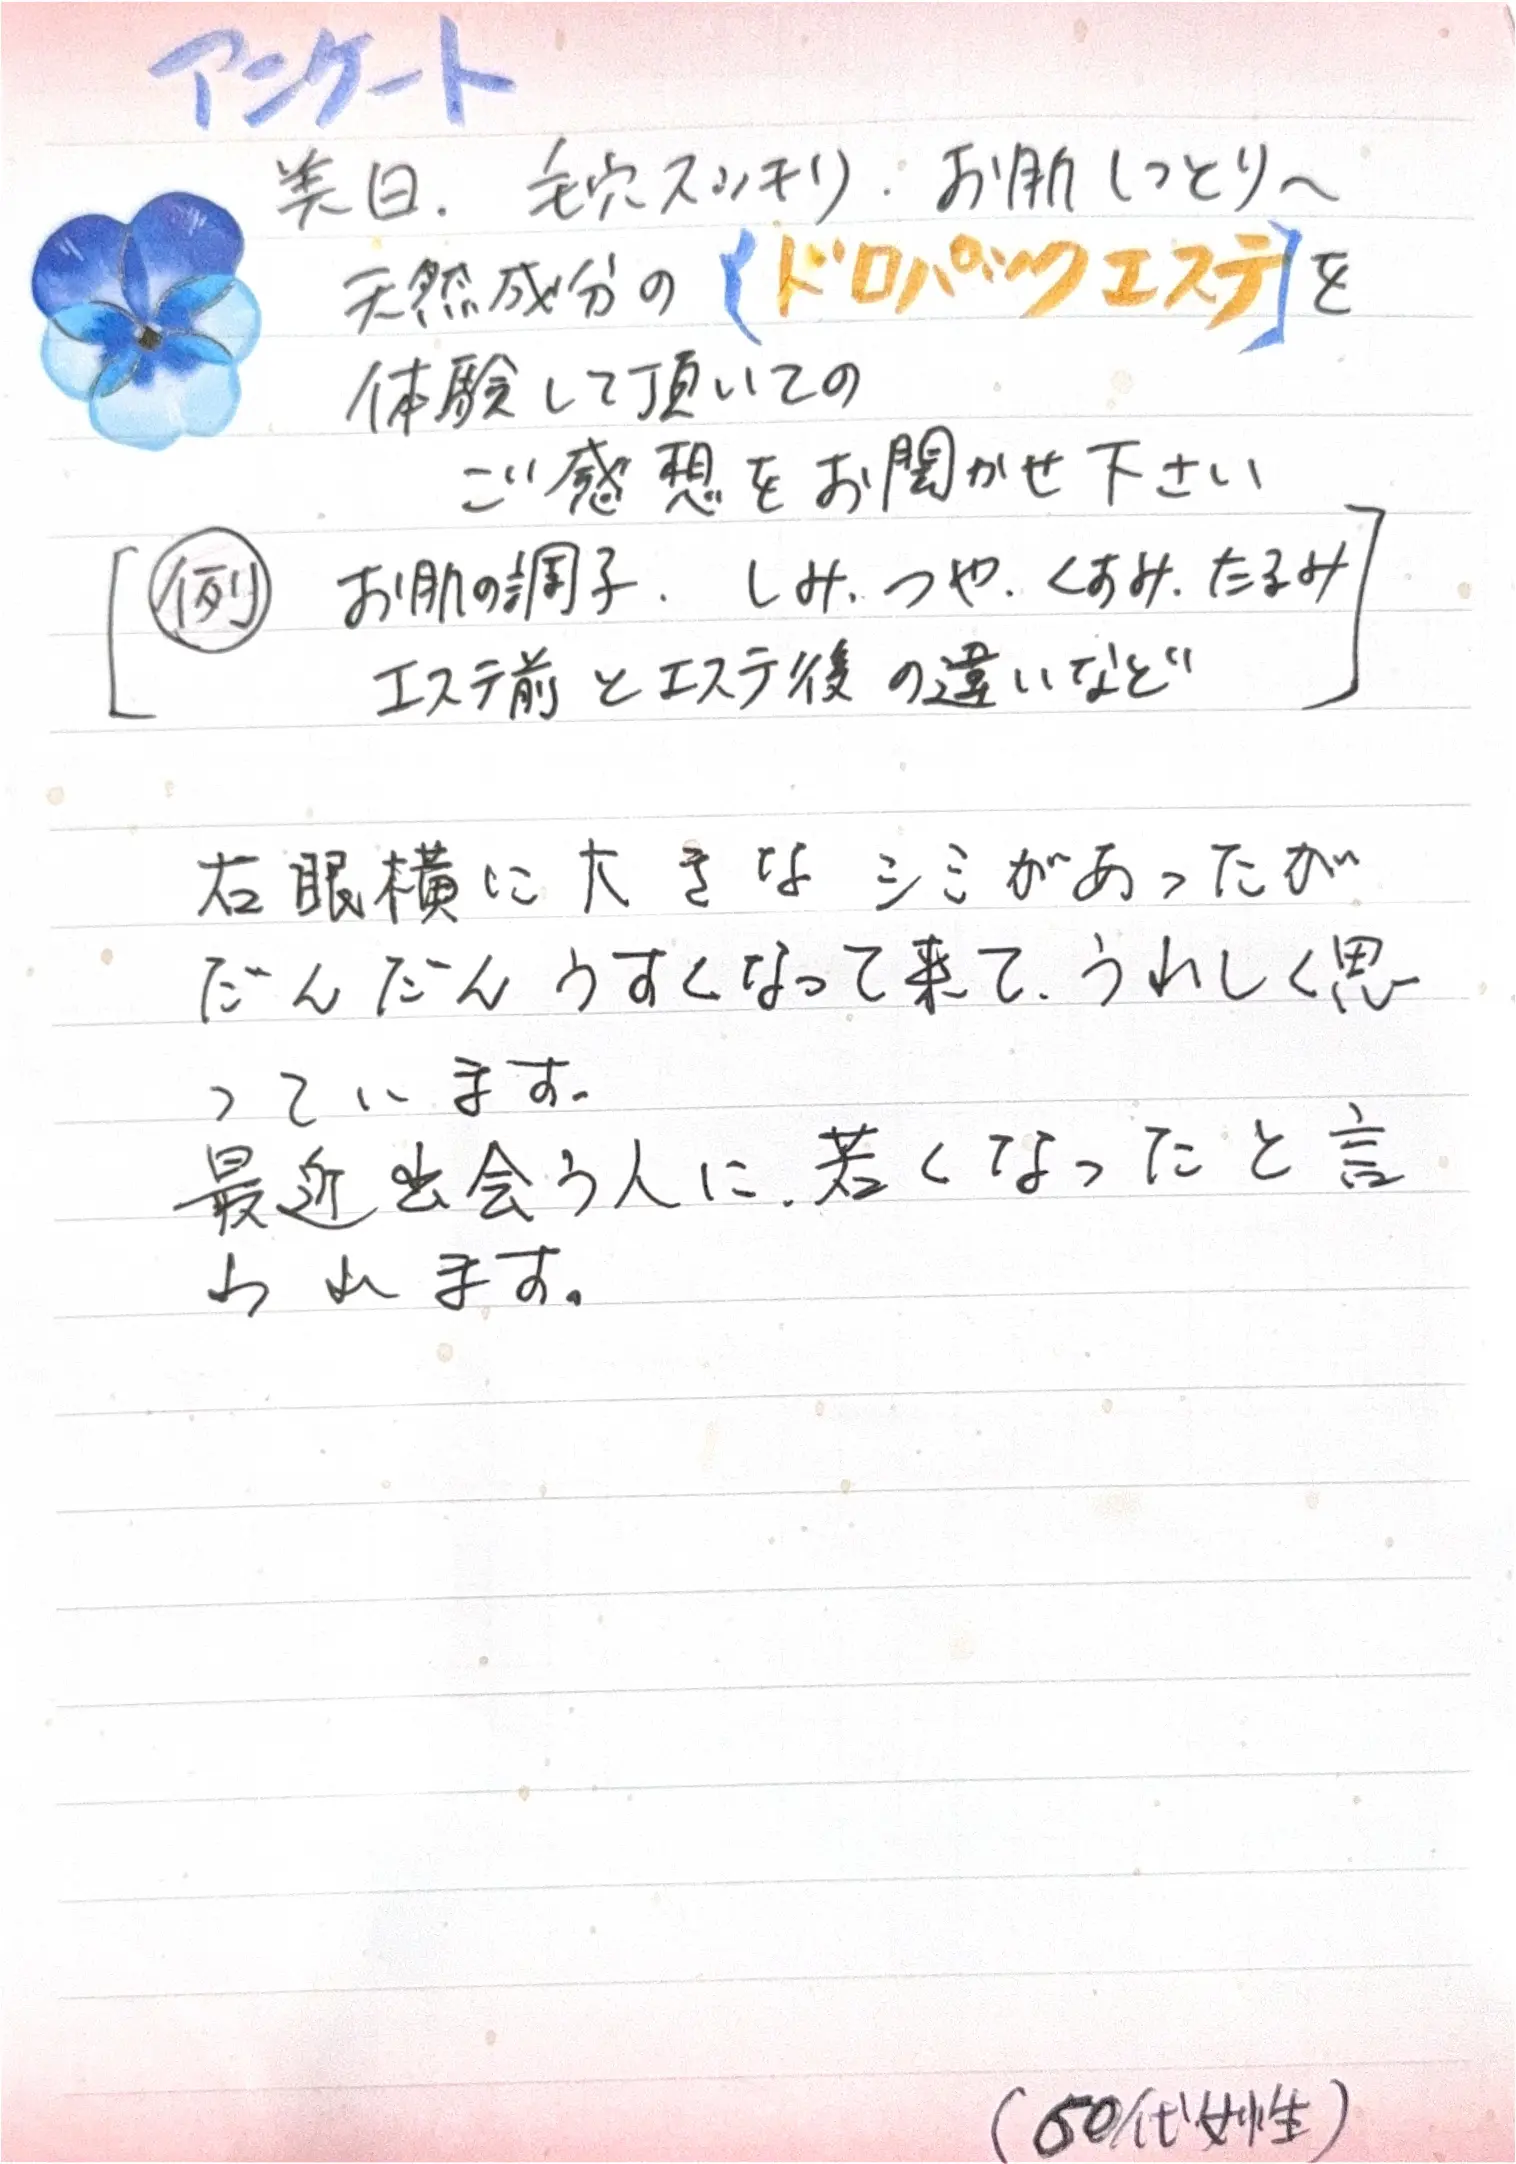 アンケート
美白. 毛穴スッキリ. お肌しっとりへ
天然成分の【ドロパックエステ】を
体験して頂いての
ご感想をお聞かせ下さい
[例 お肌の調子. しみ. つや. くすみ. たるみ
エステ前とエステ後の違いなど]
右眼横に大きなシミがあったが
だんだんうすくなって来て. うれしく思
っています。
最近出会う人に. 若くなったと言
われます。
(50代女性)